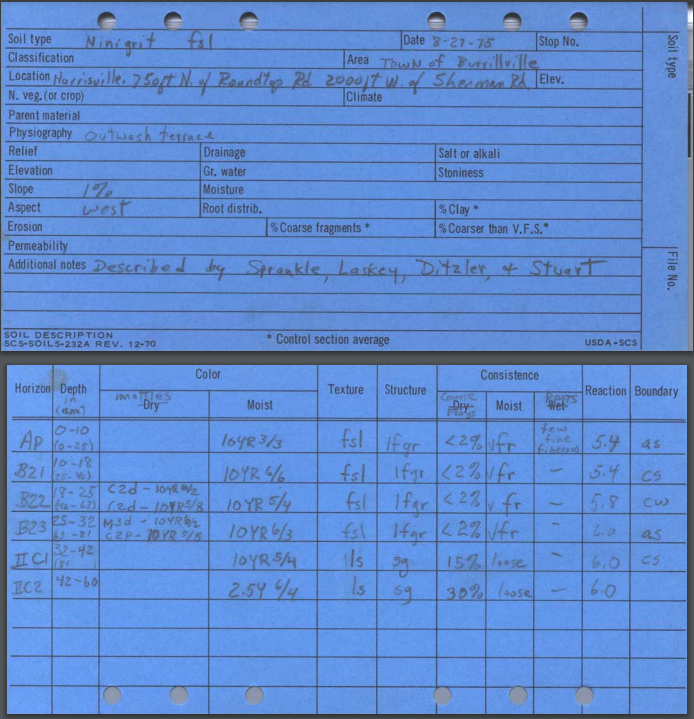 Soil type Ninigret fsl Date 8-27-75 Stop No.
Classification Area Town of Burrillville
Location Harrisville. 750ft N. of Roundtop Rd. 2000ft W. of Sherman Rd Elev.
N. veg. (or crop) Climate
Parent material
Physiography Outwash terrace
Relief Drainage Salt or alkali
Elevation Gr. water Stoniness
Slope 1% Moisture
Aspect west Root distrib. % Clay *
Erosion % Coarse fragments * % Coarser than V.F.S.*
Permeability
Additional notes Described by Sprankle, Laskey, Ditzler, + Stuart
SOIL DESCRIPTION
SCS-SOILS-232A REV. 12-70 * Control section average USDA-SCS
Soil type
File No.
Color Consistence
Horizon Depth in (cm) mottles Dry Moist Texture Structure Coarse Frags Dry Moist Roots Wet Reaction Boundary
Ap 0-10 (0-25) 10YR 3/3 fsl 1fgr <2% vfr few fine fibrous 5.4 as
B21 10-18 (25-46) 10YR 6/6 fsl 1fgr <2% vfr — 5.4 cs
B22 18-25 c2d - 10YR 6/2 c2d - 10YR 5/8 10YR 5/4 fsl 1fgr <2% vfr — 5.8 cw
B23 25-32 M3d - 10YR 6/2 c2p - 10YR 5/8 10YR 6/3 fsl 1fgr <2% vfr — 6.0 as
IIC1 32-42 (81 10YR 5/4 ls sg 15% loose — 6.0 cs
IIC2 42-60 2.5Y 6/4 ls sg 30% loose — 6.0